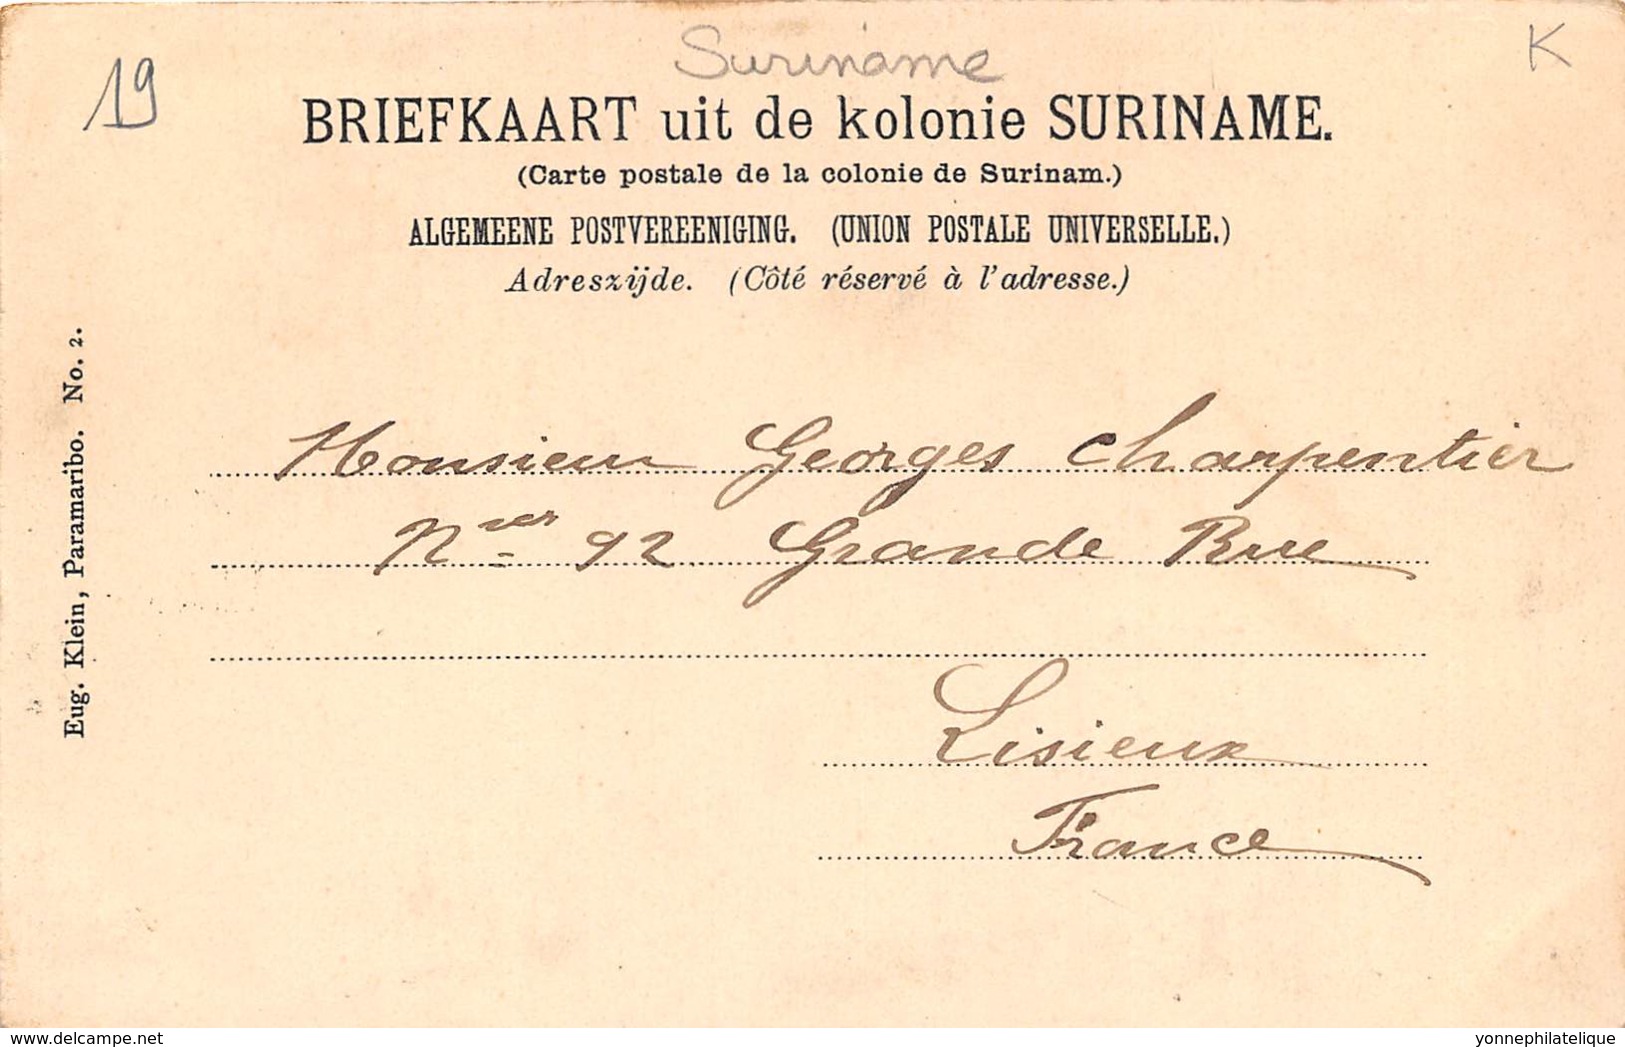 19
Suriname
K
BRIEFKAART uit de kolonie SURINAME.
(Carte postale de la colonie de Surinam.)
ALGEMEENE POSTVEREENIGING. (UNION POSTALE UNIVERSELLE.)
Adreszijde. (Côté réservé à l'adresse.)
Eug. Klein, Paramaribo. No. 2.
Monsieur Georges Charpentier
Nr 92 Grande Rue
Lisieux
France
delcampe.net
yonnephilatelique